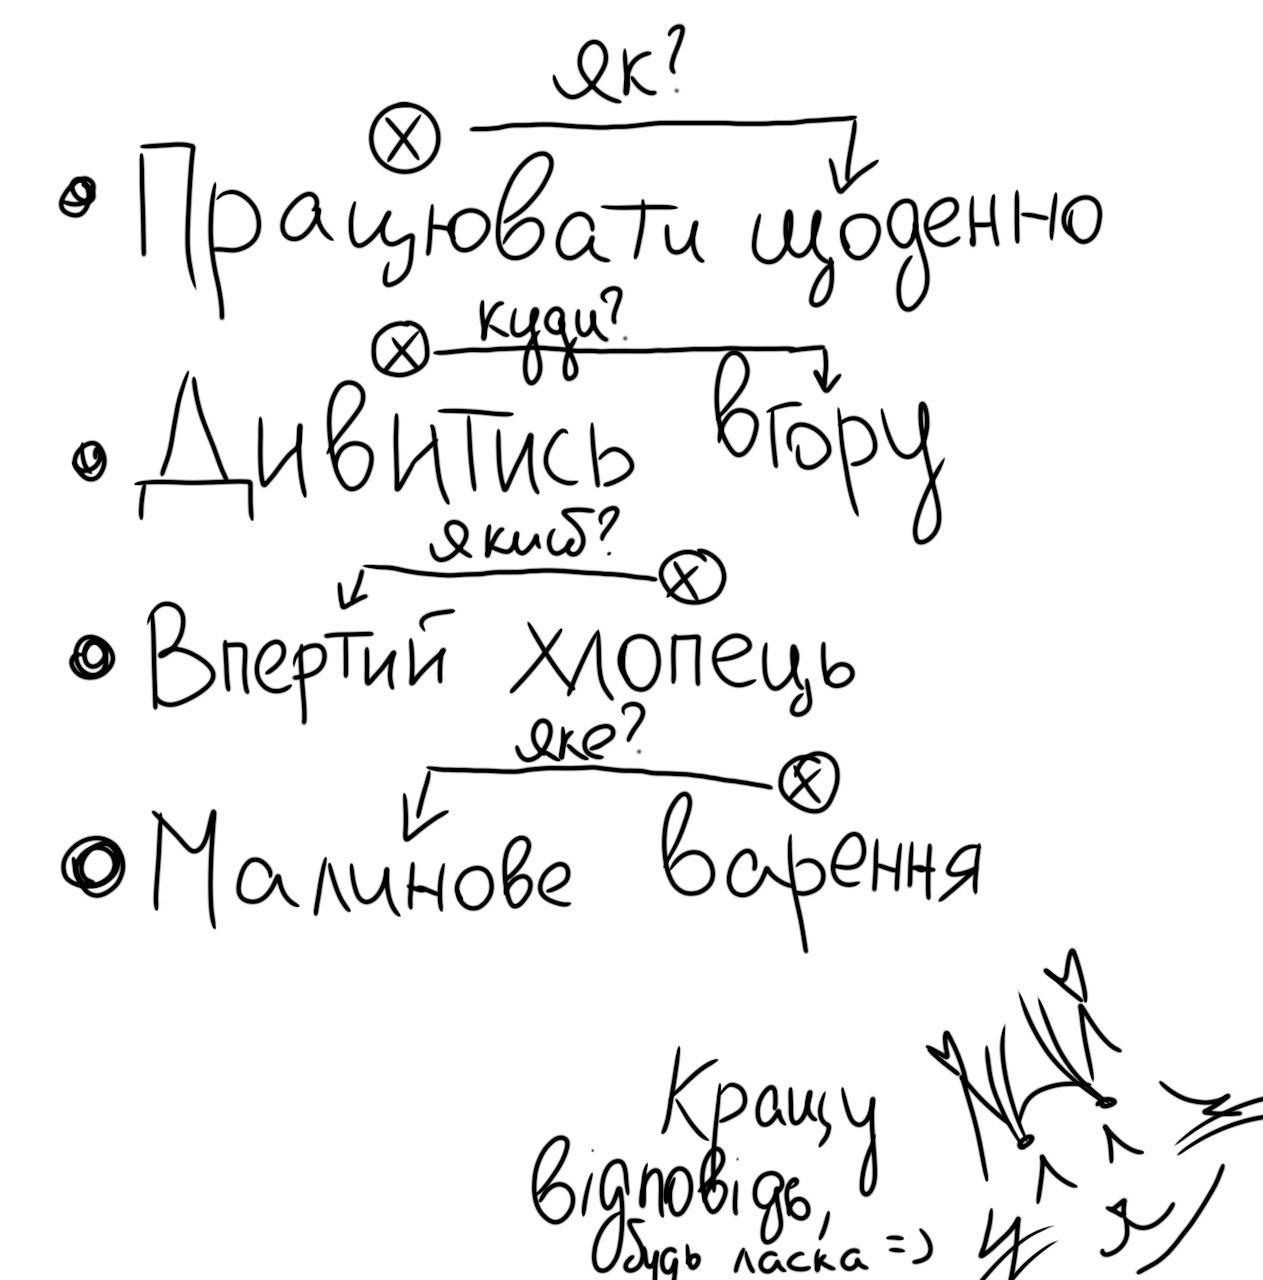 як?
Ⓧ
• Працювати щоденно
куди?
Ⓧ
• Дивитись вгору
який?
Ⓧ
• Впертий хлопець
яке?
Ⓧ
• Малинове варення
Кращу
відповідь,
будь ласка =)